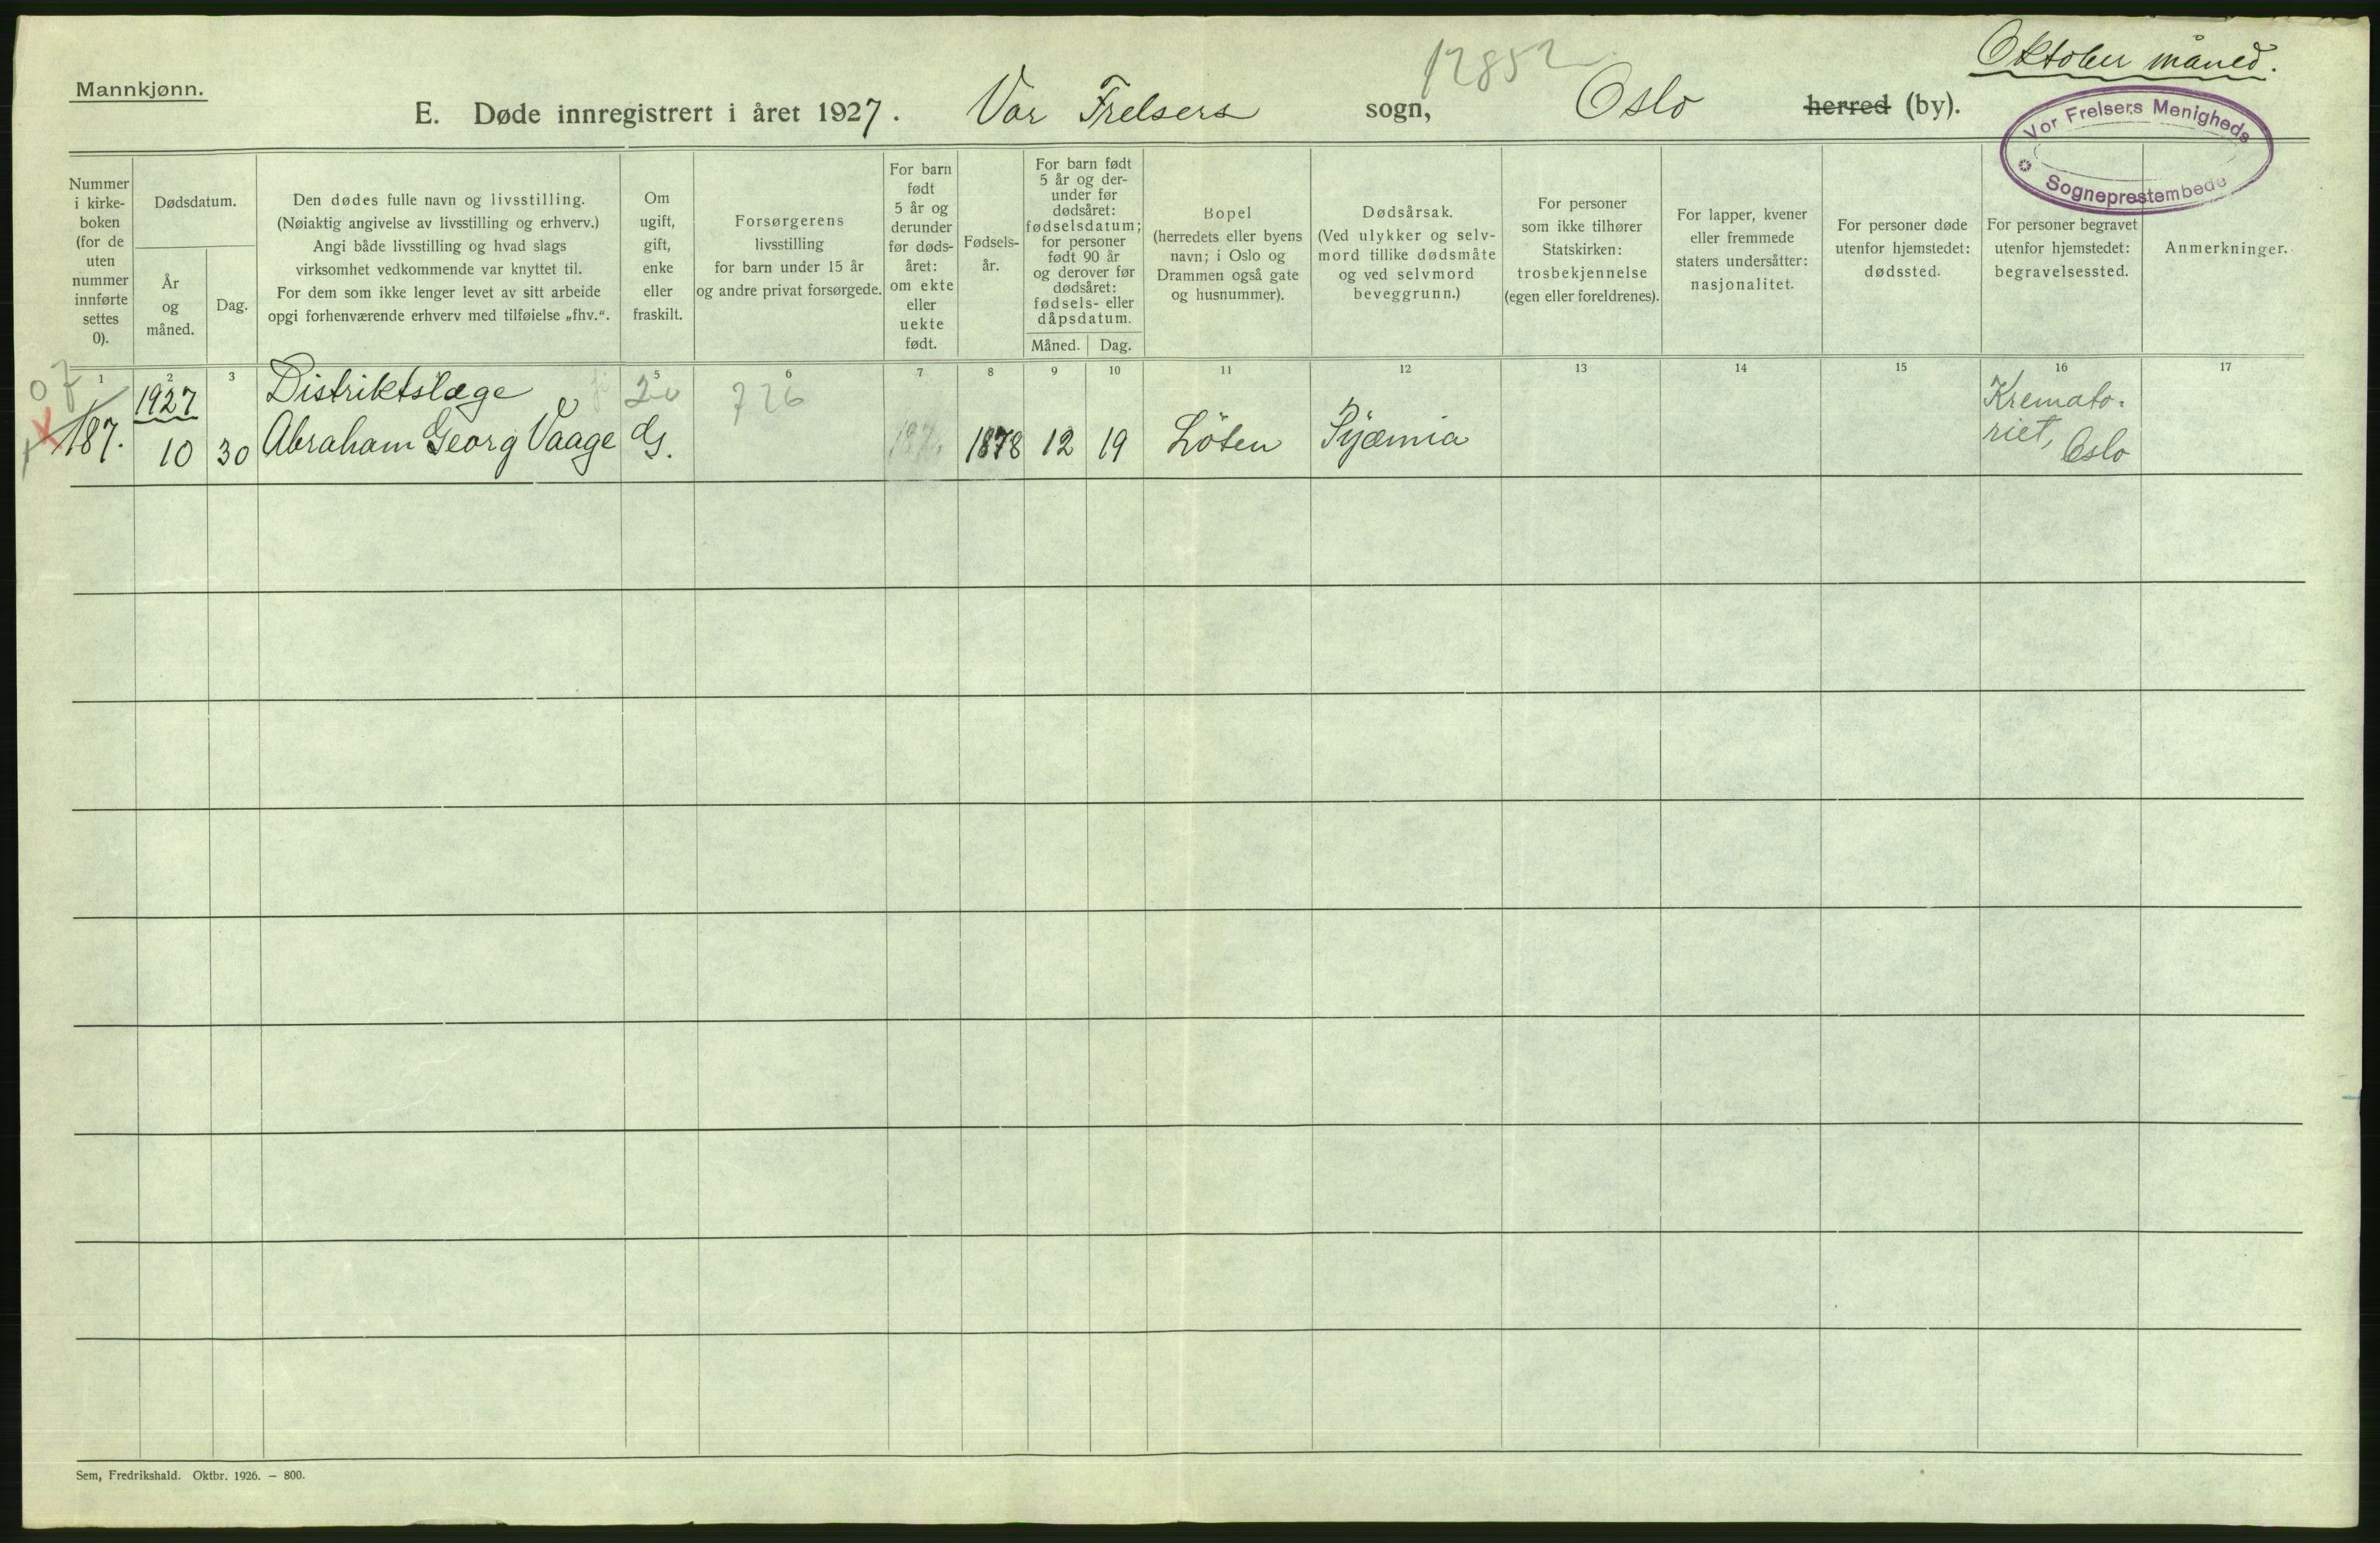 Oktober måned.
12852
Mannkjønn.
E. Døde innregistrert i året 1927. Vor Frelsers sogn, Oslo herred (by).
Vor Frelsers Menigheds
Sogneprestembede
Nummer
i kirke-
boken
(for de
uten
nummer
innførte
settes
0).
Dødsdatum.
År
og
måned.
Dag.
Den dødes fulle navn og livsstilling.
(Nøiaktig angivelse av livsstilling og erhverv.)
Angi både livsstilling og hvad slags
virksomhet vedkommende var knyttet til.
For dem som ikke lenger levet av sitt arbeide
opgi forhenværende erhverv med tilføielse „fhv.“.
Om
ugift,
gift,
enke
eller
fraskilt.
Forsørgerens
livsstilling
for barn under 15 år
og andre privat forsørgede.
For barn
født
5 år og
derunder
før døds-
året:
om ekte
eller
uekte
født.
Fødsels-
år.
For barn født
5 år og der-
under før
dødsåret:
fødselsdatum;
for personer
født 90 år
og derover før
dødsåret:
fødsels- eller
dåpsdatum.
Måned. Dag.
Bopel
(herredets eller byens
navn; i Oslo og
Drammen også gate
og husnummer).
Dødsårsak.
(Ved ulykker og selv-
mord tillike dødsmåte
og ved selvmord
beveggrunn.)
For personer
som ikke tilhører
Statskirken:
trosbekjennelse
(egen eller foreldrenes).
For lapper, kvener
eller fremmede
staters undersåtter:
nasjonalitet.
For personer døde
utenfor hjemstedet:
dødssted.
For personer begravet
utenfor hjemstedet:
begravelsessted.
Anmerkninger.
1 2 3 5 6 7 8 9 10 11 12 13 14 15 16 17
07
1927 Distriktslæge 20 726 Kremato-
187. 10 30 Abraham Georg Vaage G. 1878 12 19 Löten Pyæmia riet, Oslo
Sem, Fredrikshald. Oktbr. 1926. – 800.